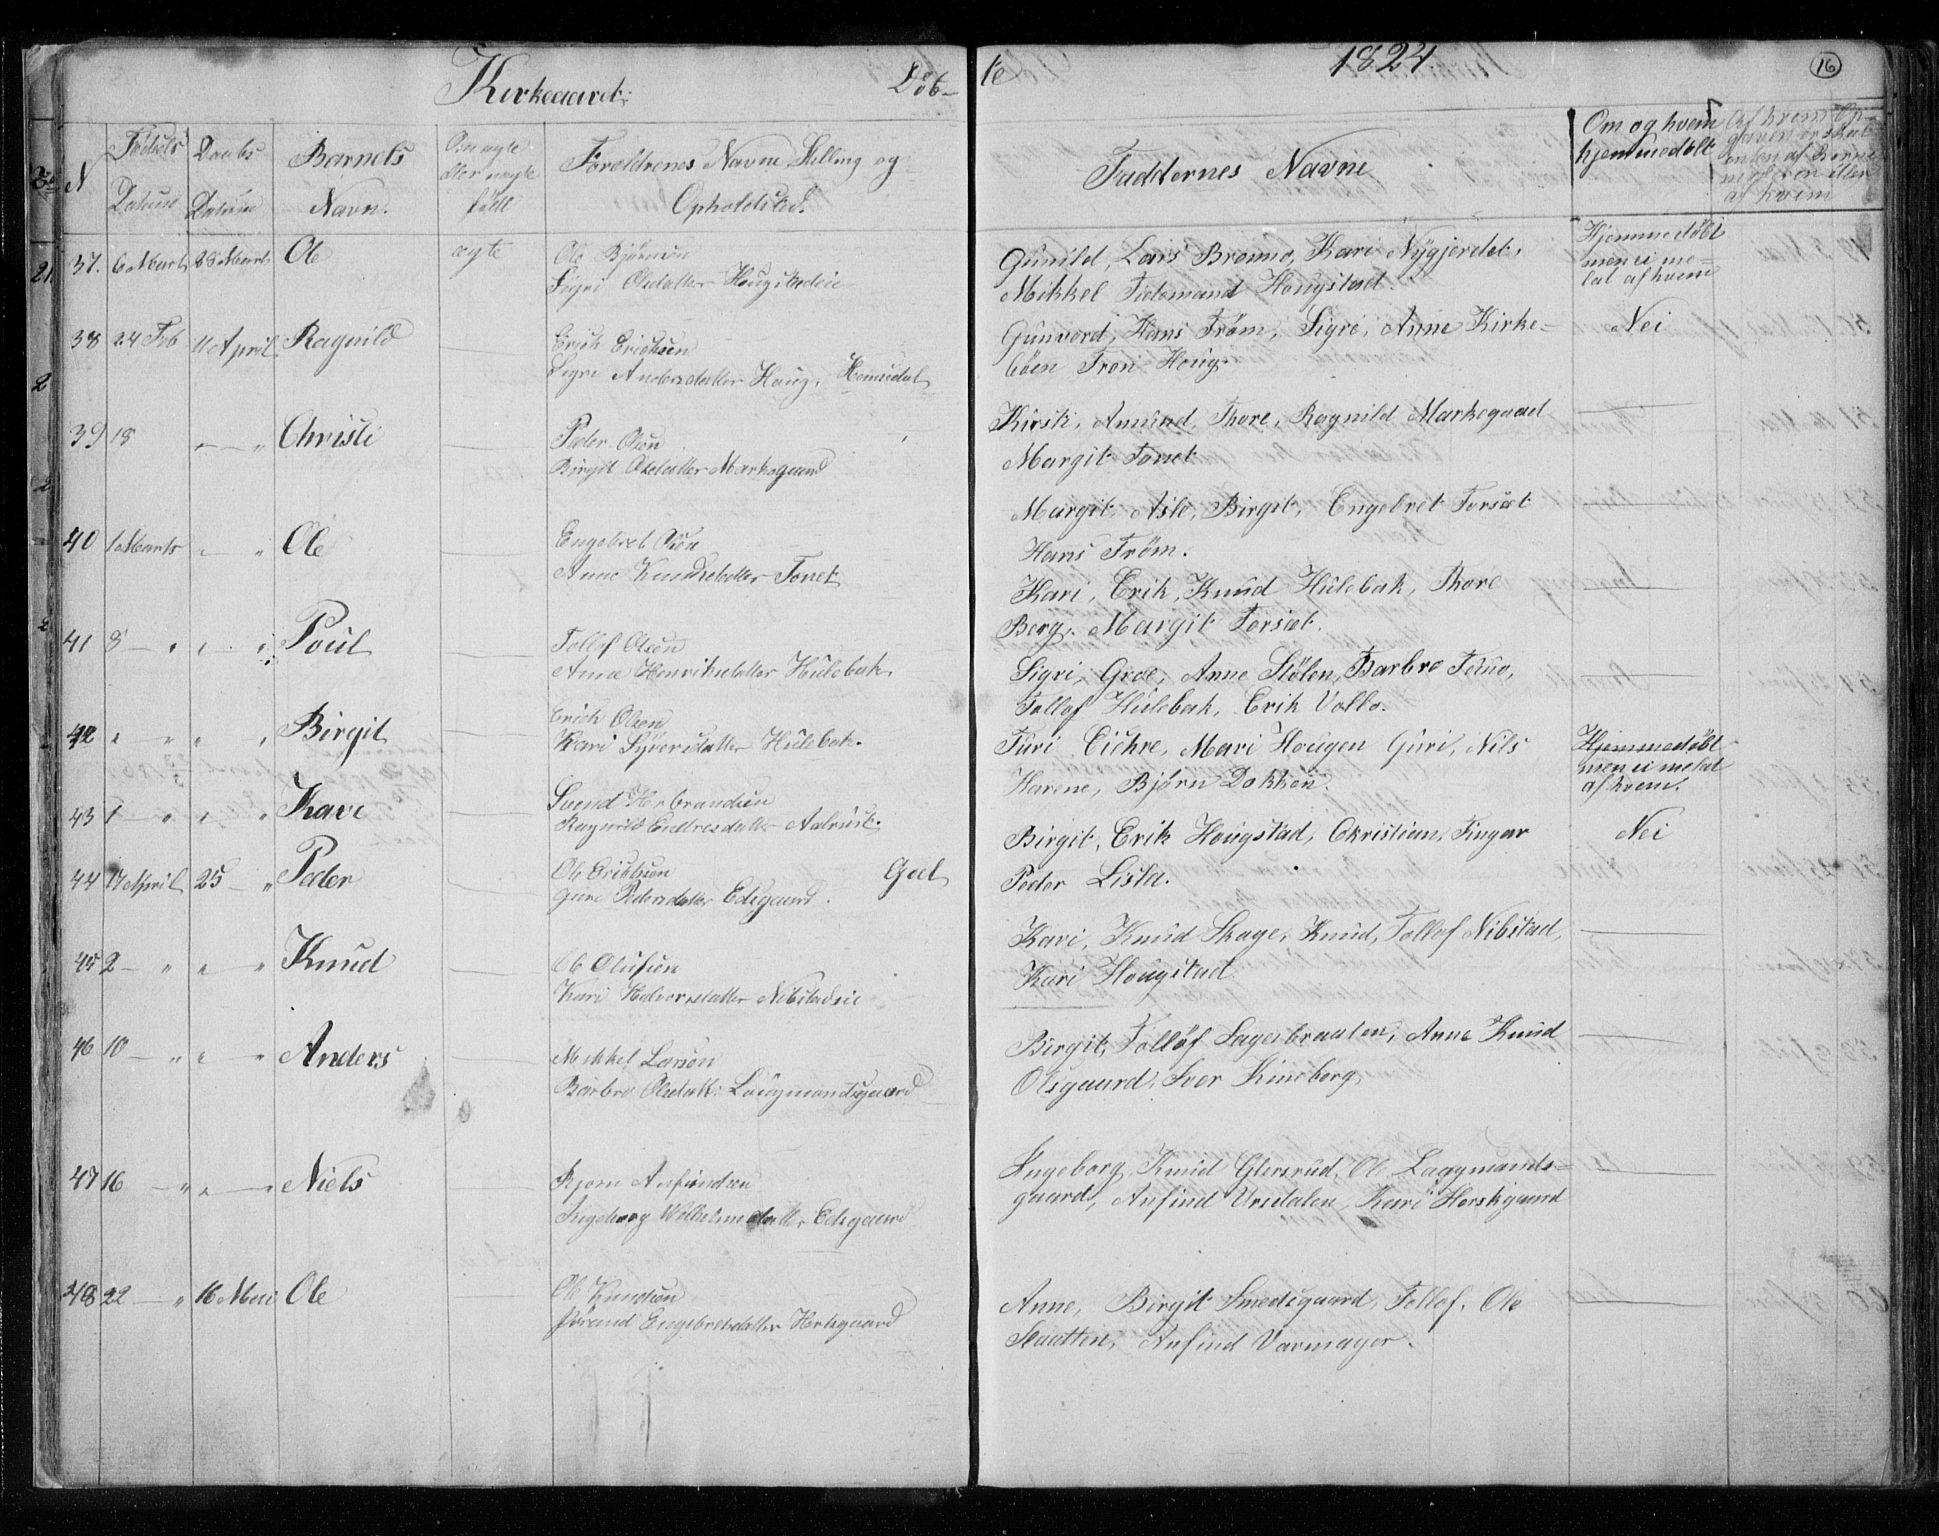 Kirkeaaret Døb-
te 1824 16
N
Fødsels
Datum
Daabs
Datum
Barnets
Navn.
Om ægte
eller uægte
født
Forældrenes Navne Stilling og
Opholdsted.
Faddernes Navne
Om og hvem
hjemmedøbt
af hvem
37. 6 Marts 28 Marts Ole ægte Ole Bjørnsen
Sigri Olsdatter Hougstadeie
Gunild, Lars Brenno, Kari Nygjerdet,
Mikkel Tidemand Hougstad.
Hjemmedøbt
men ei me-
lat af hvem
38 24 Feb 11 April Ragnild Erich Erichsen
Sigri Andersdatter Houg, Hemsedal
Gunvord, Hans Trøm, Sigri, Anne Kirke-
böen Tron Houg.
Nei
39 18 " " Christi Peder Olsen
Birgit Olsdatter Markegaard
Kirsti, Amund, Thore, Ragnild Markegaard
Margit Tonet
40 1 Marts " " Ole Engebret Olsen
Anne Knudsdatter Tonet
Margit, Aslo, Birgit, Engebret Torset
Hans Trøm.
41 8 " " " Poul Tollof Olsen
Anne Henriksdatter Hulebak.
Kari, Erik, Knud Hulebak, Thore
Berg, Margit Torset.
42 " " " " Birgit Erich Olsen
Kari Syversdatter Hulebak.
Sigri, Groe, Anne Stølen, Barbro
Tollof Hulebak, Erik Vollo.
43 1 " " " Kari Svend Herbrandsen
Ragnild Endresdatter Aalrust.
Turi Eichre, Mari Hougen Guri, Nils
Harene, Bjørn Dokken.
Hjemmedøbt
men ei melat
af hvem.
44 17 April 25 " Peder Ole Erichsen Goel
Guri Pedersdatter Edsgaard.
Birgit, Erik Hougstad, Christian, Tingar
Peder Lista.
Nei
45 2 " " " Knud Ole Olufsen
Kari Halvorsdatter Nibstadeie
Kari, Knud Skage, Knud, Tollof Nibstad,
Kari Hougstad
46 10 " " " Anders Mikkel Larsen
Barbro Olsdatt: Laugmandsgaard
Birgit, Tollof Sagerbraaten, Anne Knud
Olsgaard, Iver Kineberg
47 16 " " " Niels Bjørn Anfindsen
Ingeborg Wilhelmsdatter Edsgaard
Ingeborg, Knud Glersrud, Ole Laggmands-
gaard, Anfind Ursdalen, Kari Herskgaard
48 22 " 16 Mai Ole Ole Knudsen
Jørand Engebretsdatter Hersgaard
Anne, Birgit Smedsgaard, Tollof, Ole
Slaatten, Anfind Varmager.